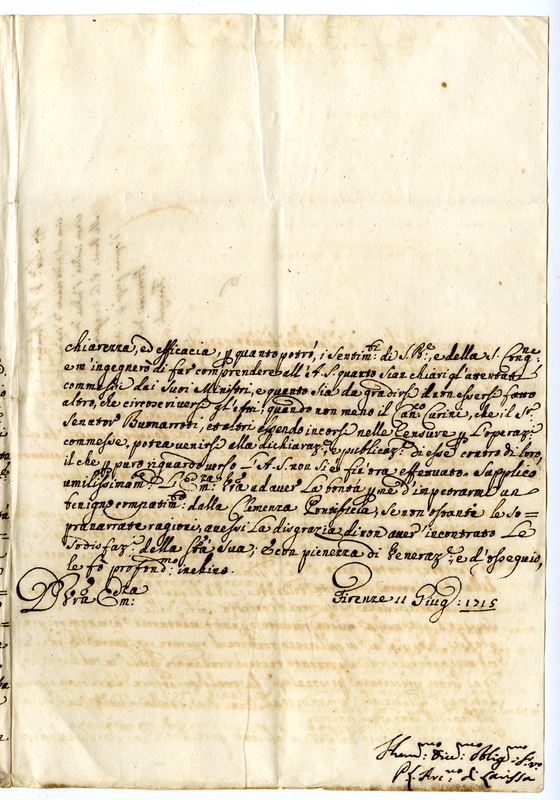 chiarezza, ed efficacia, p quanto potrò, i Sentim:ti di S. B:e, e della S. Cong:ne
e m'ingegnerò di far comprendere all'A.S. quanto sian chiari gl'attentati
commessi dai Suoi Ministri, e quanto sia da gradirsi il non essersi fatto
altro, che circoscriversi gl'atti; quando non meno il, che il S:r
Senator Buonarroti, et altri essendo incorsi nelle Censure p l'operaz:i
commesse, potea venirsi alla dichiaraz:e, e publicaz:e di esse contro di loro,
il che p puro riguardo verso L'A.S. non si è fin'ora effettuato. Supplico
umilissimam:te L'Em:za Vra ad aver La bontà p me d'impetrarmi un
benigno compatim:to dalla Clemenza Pontificia, se non ostante le so=
pranarrate ragioni, avessi La disgrazia di non aver incontrato Le
Sodisfaz:i della S:tà Sua; & con pienezza di Veneraz:e, e d'ossequio,
le fò profond:mo inchino.
D Vra Em:za
Firenze 11 Giug: 1715
Hum:mo Dev:mo Oblig:mo S:re
Arc:vo di Larissa